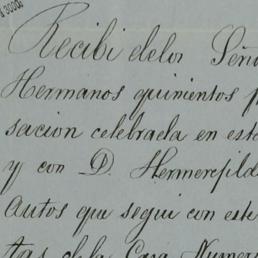 Recibí de los Seño
Hermanos quinientos p
sacion celebrada en este
y con D. Hermenejildo
autos que seguí con este
tas de la Casa Numer